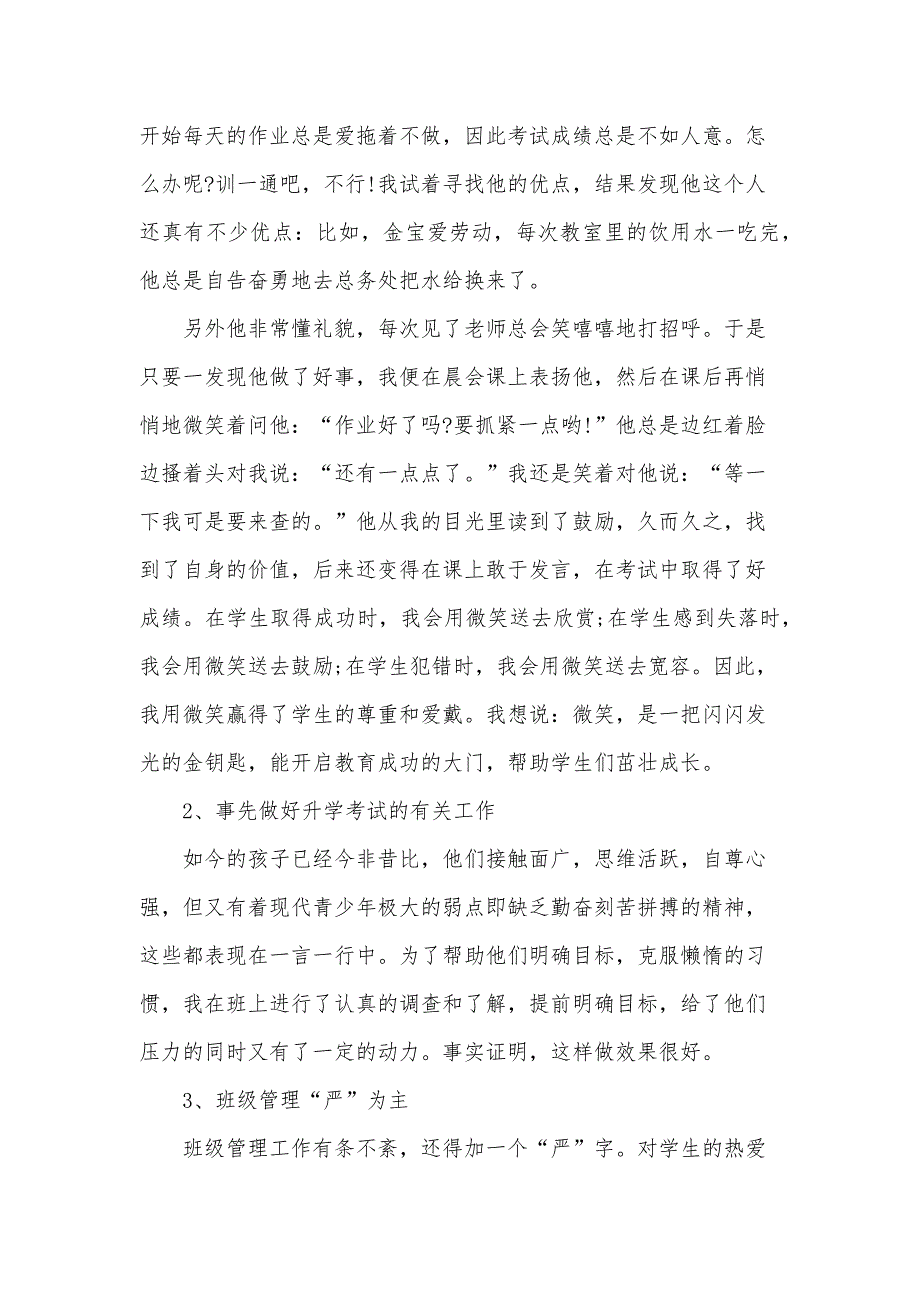 开始每天的作业总是爱拖着不做，因此考试成绩总是不如人意。怎
么办呢?训一通吧，不行!我试着寻找他的优点，结果发现他这个人
还真有不少优点：比如，金宝爱劳动，每次教室里的饮用水一吃完，
他总是自告奋勇地去总务处把水给换来了。
另外他非常懂礼貌，每次见了老师总会笑嘻嘻地打招呼。于是
只要一发现他做了好事，我便在晨会课上表扬他，然后在课后再悄
悄地微笑着问他：“作业好了吗?要抓紧一点哟!”他总是边红着脸
边搔着头对我说：“还有一点点了。”我还是笑着对他说：“等一
下我可是要来查的。”他从我的目光里读到了鼓励，久而久之，找
到了自身的价值，后来还变得在课上敢于发言，在考试中取得了好
成绩。在学生取得成功时，我会用微笑送去欣赏;在学生感到失落时，
我会用微笑送去鼓励;在学生犯错时，我会用微笑送去宽容。因此，
我用微笑赢得了学生的尊重和爱戴。我想说：微笑，是一把闪闪发
光的金钥匙，能开启教育成功的大门，帮助学生们茁壮成长。
2、事先做好升学考试的有关工作
如今的孩子已经今非昔比，他们接触面广，思维活跃，自尊心
强，但又有着现代青少年极大的弱点即缺乏勤奋刻苦拼搏的精神，
这些都表现在一言一行中。为了帮助他们明确目标，克服懒惰的习
惯，我在班上进行了认真的调查和了解，提前明确目标，给了他们
压力的同时又有了一定的动力。事实证明，这样做效果很好。
3、班级管理“严”为主
班级管理工作有条不紊，还得加一个“严”字。对学生的热爱